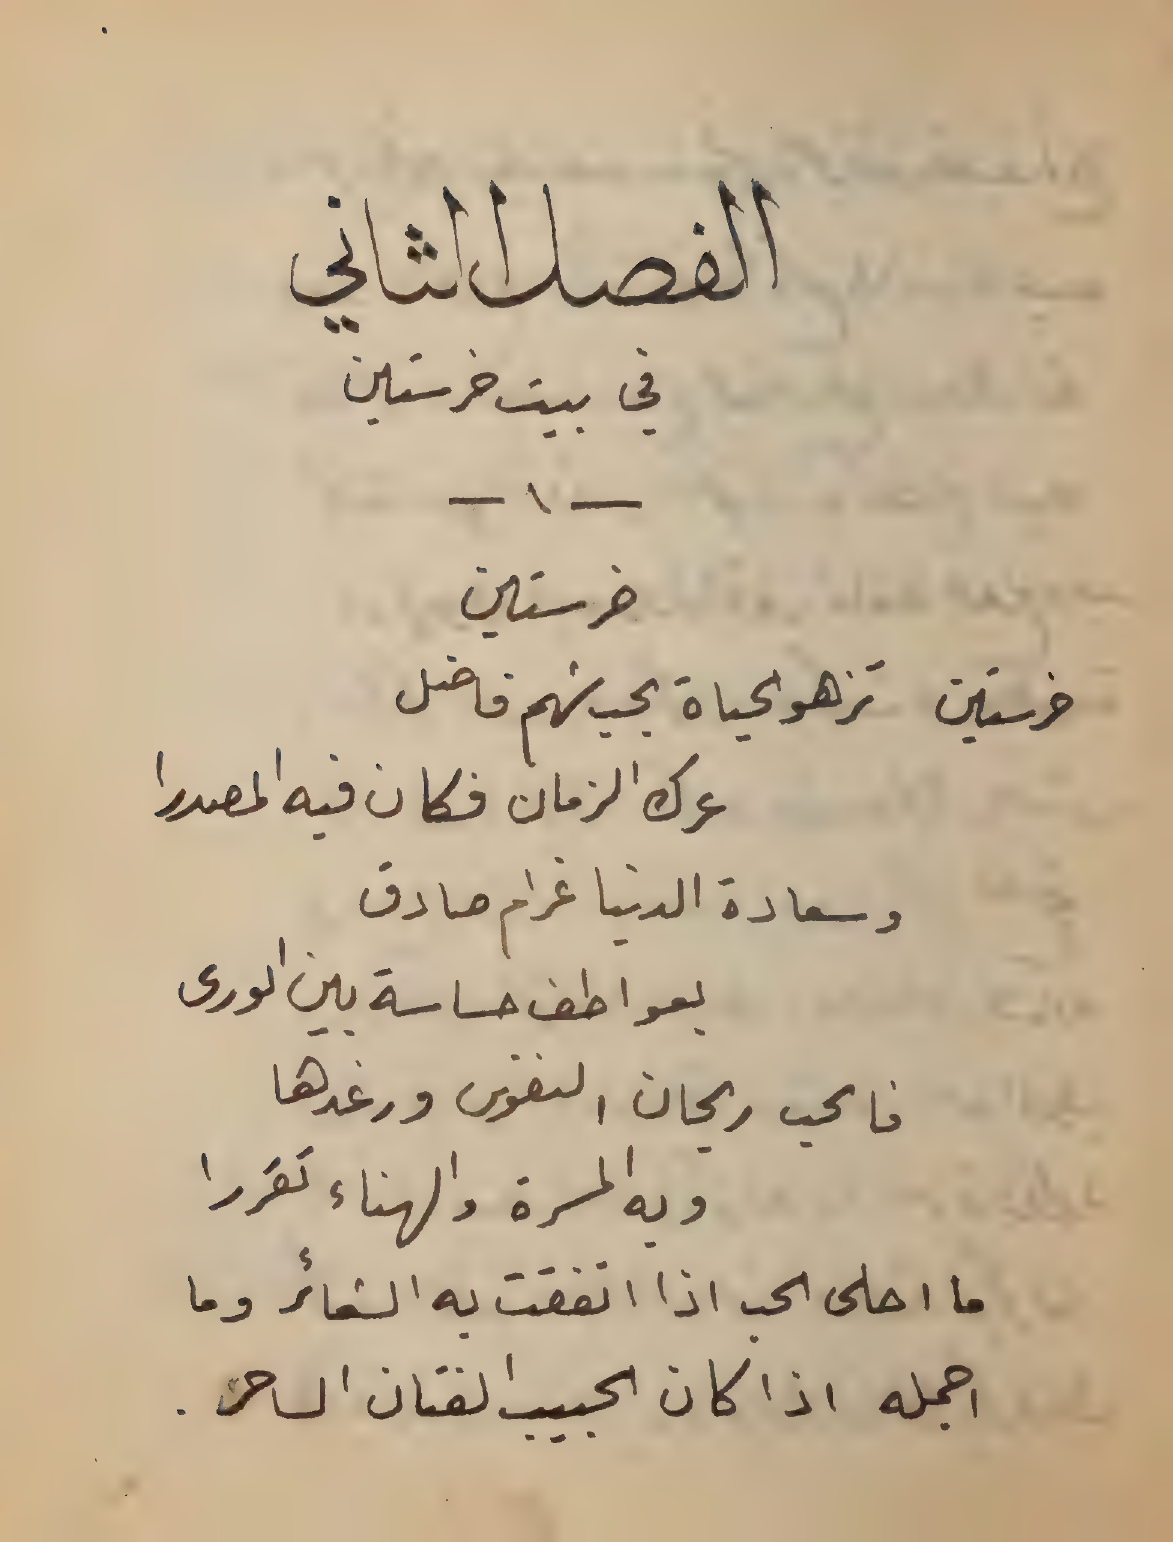 الفصل الثاني
في بيت خرستين
— ١ —
خرستين
خرستين تزهو الحياة بحب شهم فاضل
عرك الزمان فكان فيه المصدرا
وسعادة الدنيا غرام صادق
بعواطف حساسة بين الورى
فالحب ريحان النفوس ورغدها
وبه المسرة والهناء تقررا
ما احلى الحب اذا اتفقت به الشعائر وما
اجمله اذا كان الحبيب الفتان الساحر .